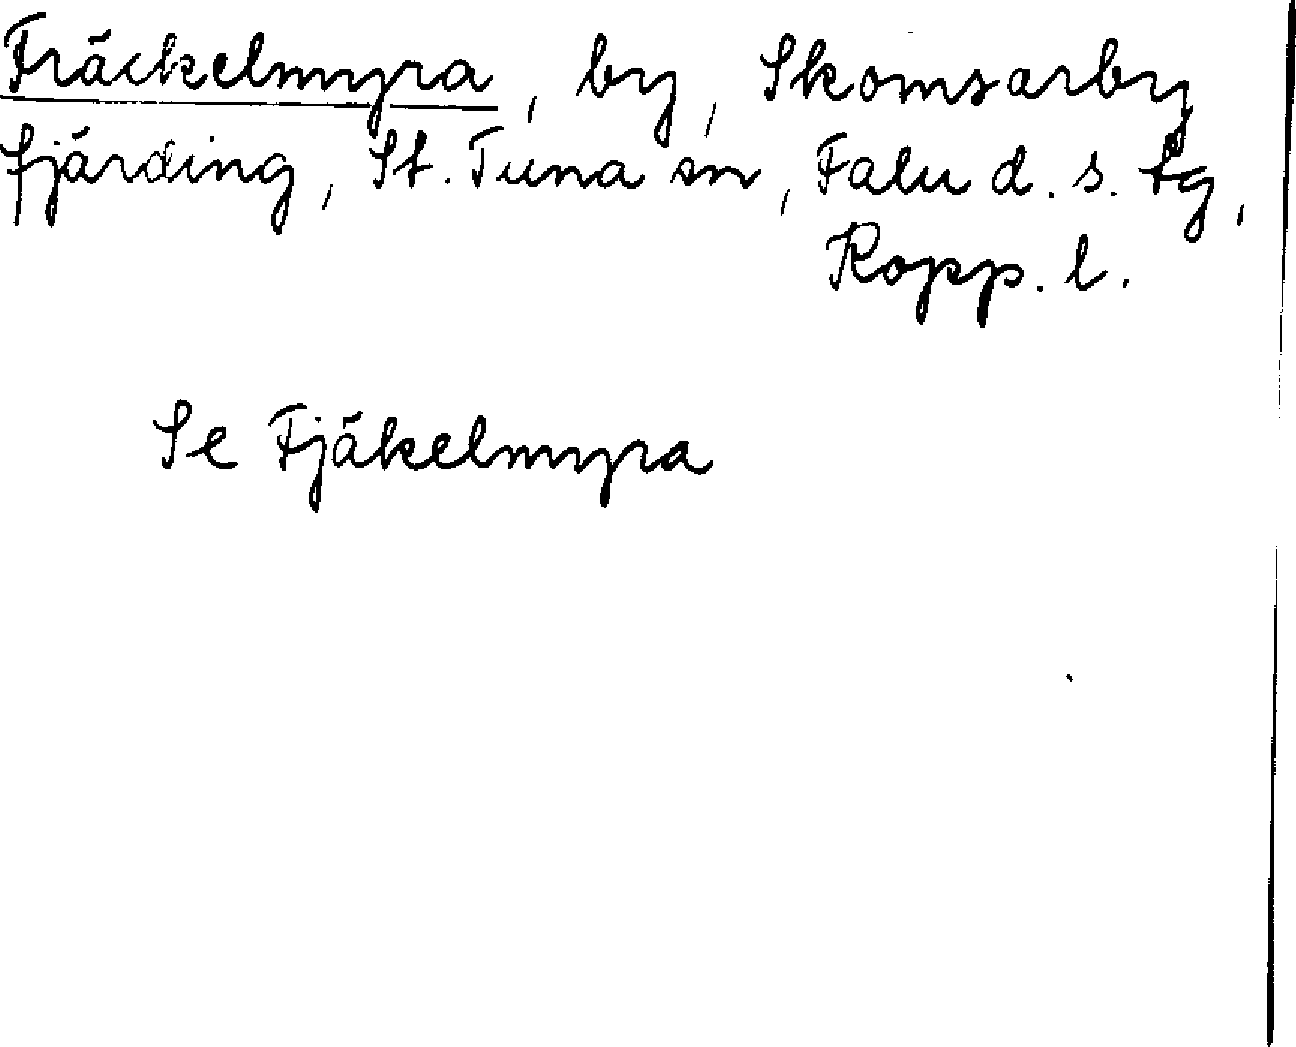 Fräckelmyra, by, Skomsarby
fjärding, St. Tuna sn, Falu d. s. tg,
Kopp. l.
Se Fjäkelmyra